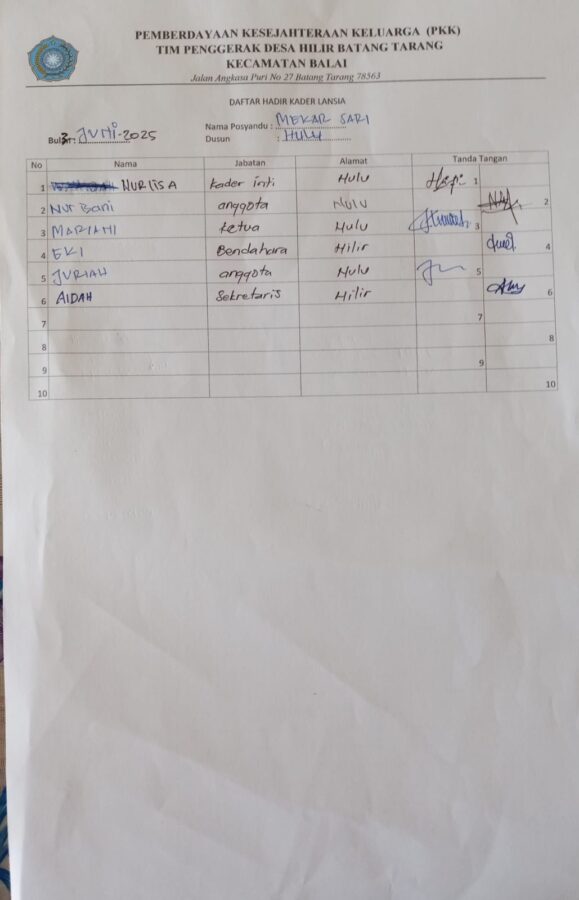 PEMBERDAYAAN KESEJAHTERAAN KELUARGA (PKK)
TIM PENGGERAK DESA HILIR BATANG TARANG
KECAMATAN BALAI
Jalan Angkasa Puri No 27 Batang Tarang 78563
DAFTAR HADIR KADER LANSIA
Nama Posyandu : MEKAR SARI
Bulan : 3 JUNI-2025
Dusun : HULU
No Nama Jabatan Alamat Tanda Tangan
1 NURLISA kader inti HULU 1
2 Nur Bani anggota HULU 2
3 MARIANI ketua HULU 3
4 EKI Bendahara Hilir 4
5 JURIAH anggota HULU 5
6 AIDAH Sekretaris Hilir 6
7 7
8 8
9 9
10 10